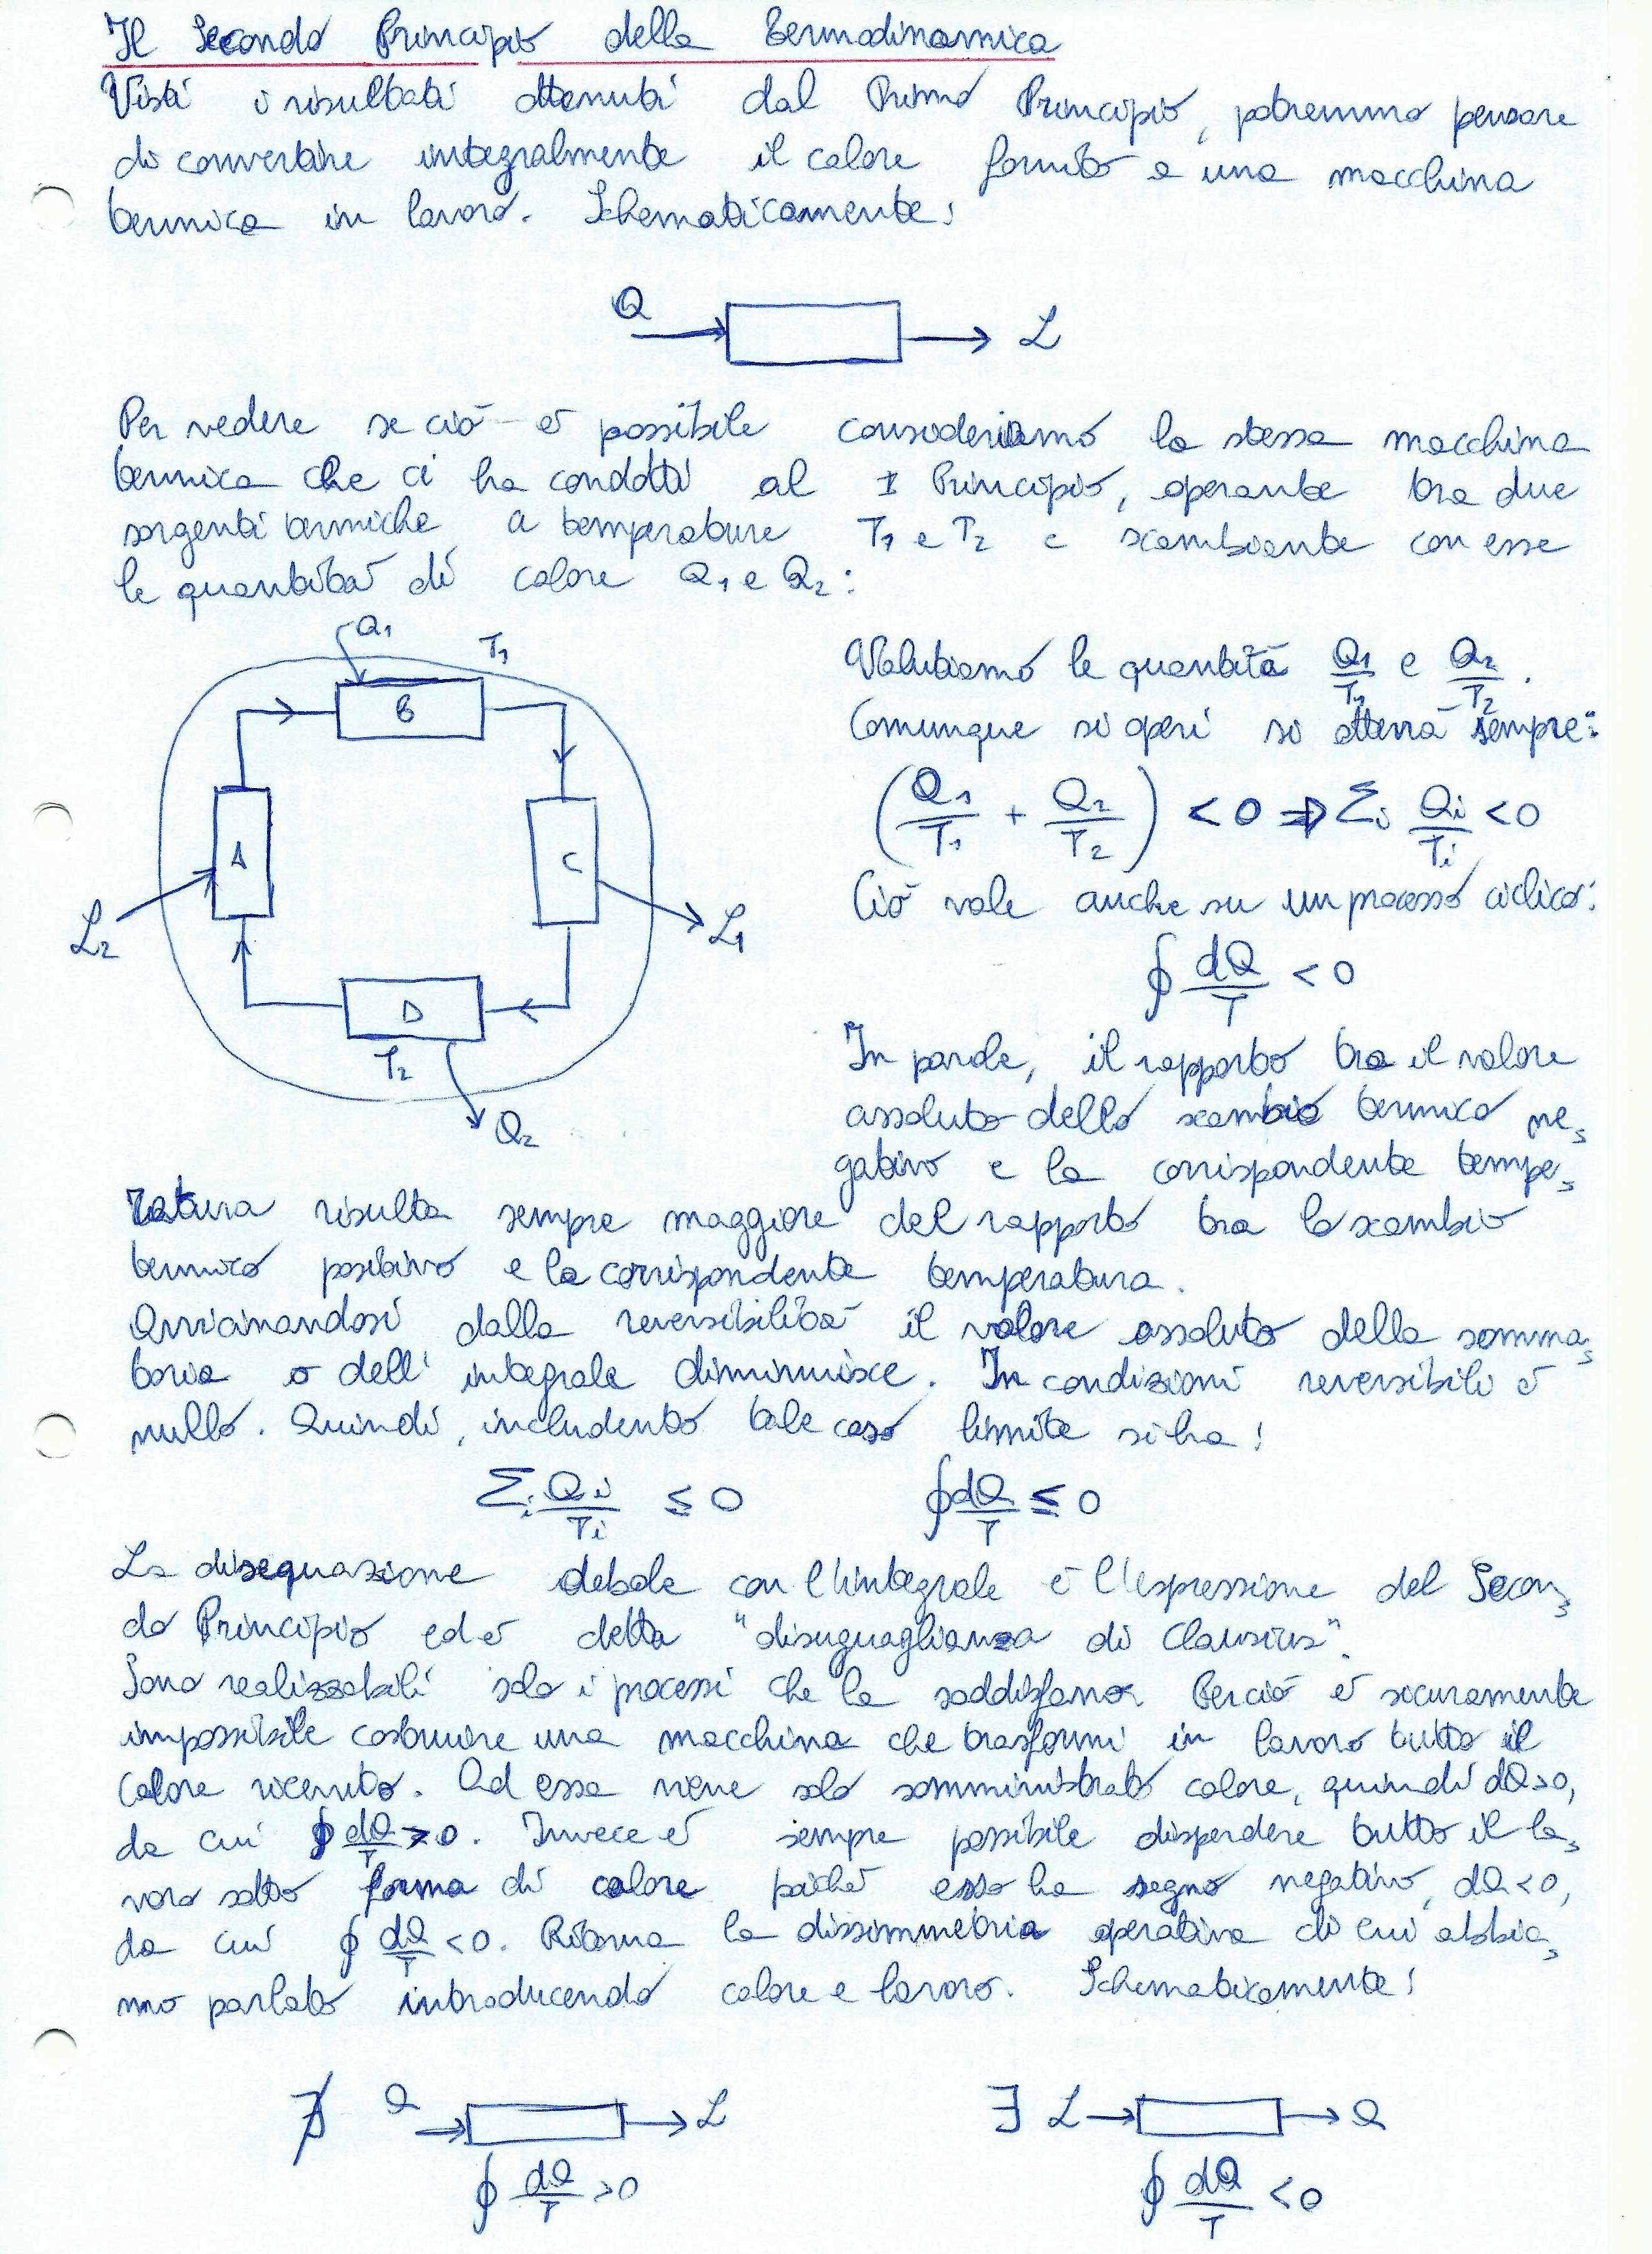 Il Secondo Principio della Termodinamica
Visti i risultati ottenuti dal Primo Principio, potremmo pensare
di convertire integralmente il calore fornito a una macchina
termica in lavoro. Schematicamente:
Q → L
Per vedere se ciò è possibile consideriamo la stessa macchina
termica che ci ha condotti al I Principio, operante tra due
sorgenti termiche a temperature T₁ e T₂ e scambiante con esse
le quantità di calore Q₁ e Q₂:
Q₁ T₁
B
A
C
L₂
L₁
D
T₂
Q₂
Valutiamo le quantità Q₁/T₁ e Q₂/T₂.
Comunque si operi si otterrà sempre:
(Q₁/T₁ + Q₂/T₂) < 0 ⇒ Σᵢ Qᵢ/Tᵢ < 0
Ciò vale anche su un processo ciclico:
∮ dQ/T < 0
In parole, il rapporto tra il valore
assoluto dello scambio termico ne=
gativo e la corrispondente tempe=
ratura risulta sempre maggiore del rapporto tra lo scambio
termico positivo e la corrispondente temperatura.
Avvicinandosi dalla reversibilità il valore assoluto della somma=
toria o dell'integrale diminuisce. In condizioni reversibili è
nullo. Quindi, includento tale caso limite si ha:
Σᵢ Qᵢ/Tᵢ ≤ 0 ∮ dQ/T ≤ 0
La disequazione debole con l'integrale è l'espressione del Secon=
do Principio ed è detta "disuguaglianza di Clausius".
Sono realizzabili solo i processi che la soddisfano. Perciò è sicuramente
impossibile costruire una macchina che trasformi in lavoro tutto il
calore ricevuto. Ad essa viene solo somministrato calore, quindi dQ>0,
da cui ∮ dQ/T > 0. Invece è sempre possibile disperdere tutto il la=
voro sotto forma di calore poiché esso ha segno negativo, dQ<0,
da cui ∮ dQ/T < 0. Ritorna la dissimmetria operativa di cui abbia=
mo parlato introducendo calore e lavoro. Schematicamente:
∄ Q → L ∃ L → Q
∮ dQ/T > 0 ∮ dQ/T < 0